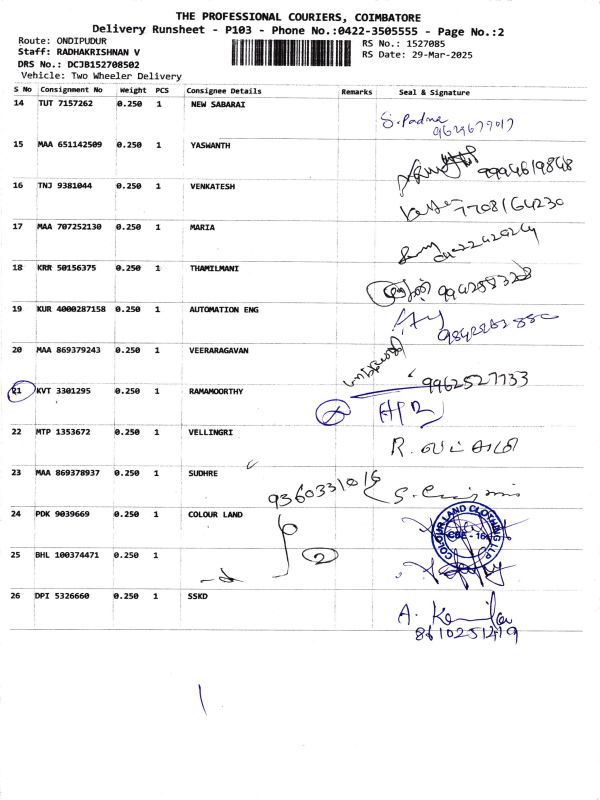 THE PROFESSIONAL COURIERS, COIMBATORE
Delivery Runsheet - P103 - Phone No.:0422-3505555 - Page No.:2
Route: ONDIPUDUR
Staff: RADHAKRISHNAN V
DRS No.: DCJB152708502
Vehicle: Two Wheeler Delivery
RS No.: 1527085
RS Date: 29-Mar-2025
S No Consignment No Weight PCS Consignee Details Remarks Seal & Signature
14 TUT 7157262 0.250 1 NEW SABARAI
S.Padma
15 MAA 651142509 0.250 1 YASWANTH
9994619848
16 TNJ 9381044 0.250 1 VENKATESH
7708164230
17 MAA 707252130 0.250 1 MARIA
18 KRR 50156375 0.250 1 THAMILMANI
19 KUR 4000287158 0.250 1 AUTOMATION ENG
20 MAA 869379243 0.250 1 VEERARAGAVAN
9962527733
21 KVT 3301295 0.250 1 RAMAMOORTHY
22 MTP 1353672 0.250 1 VELLINGRI
R.
23 MAA 869378937 0.250 1 SUDHRE
9360331015
24 PDK 9039669 0.250 1 COLOUR LAND
COLOUR LAND CLOTHING LLP
CBE - 16
25 BHL 100374471 0.250 1
2
26 DPI 5326660 0.250 1 SSKD
A.
8610251419